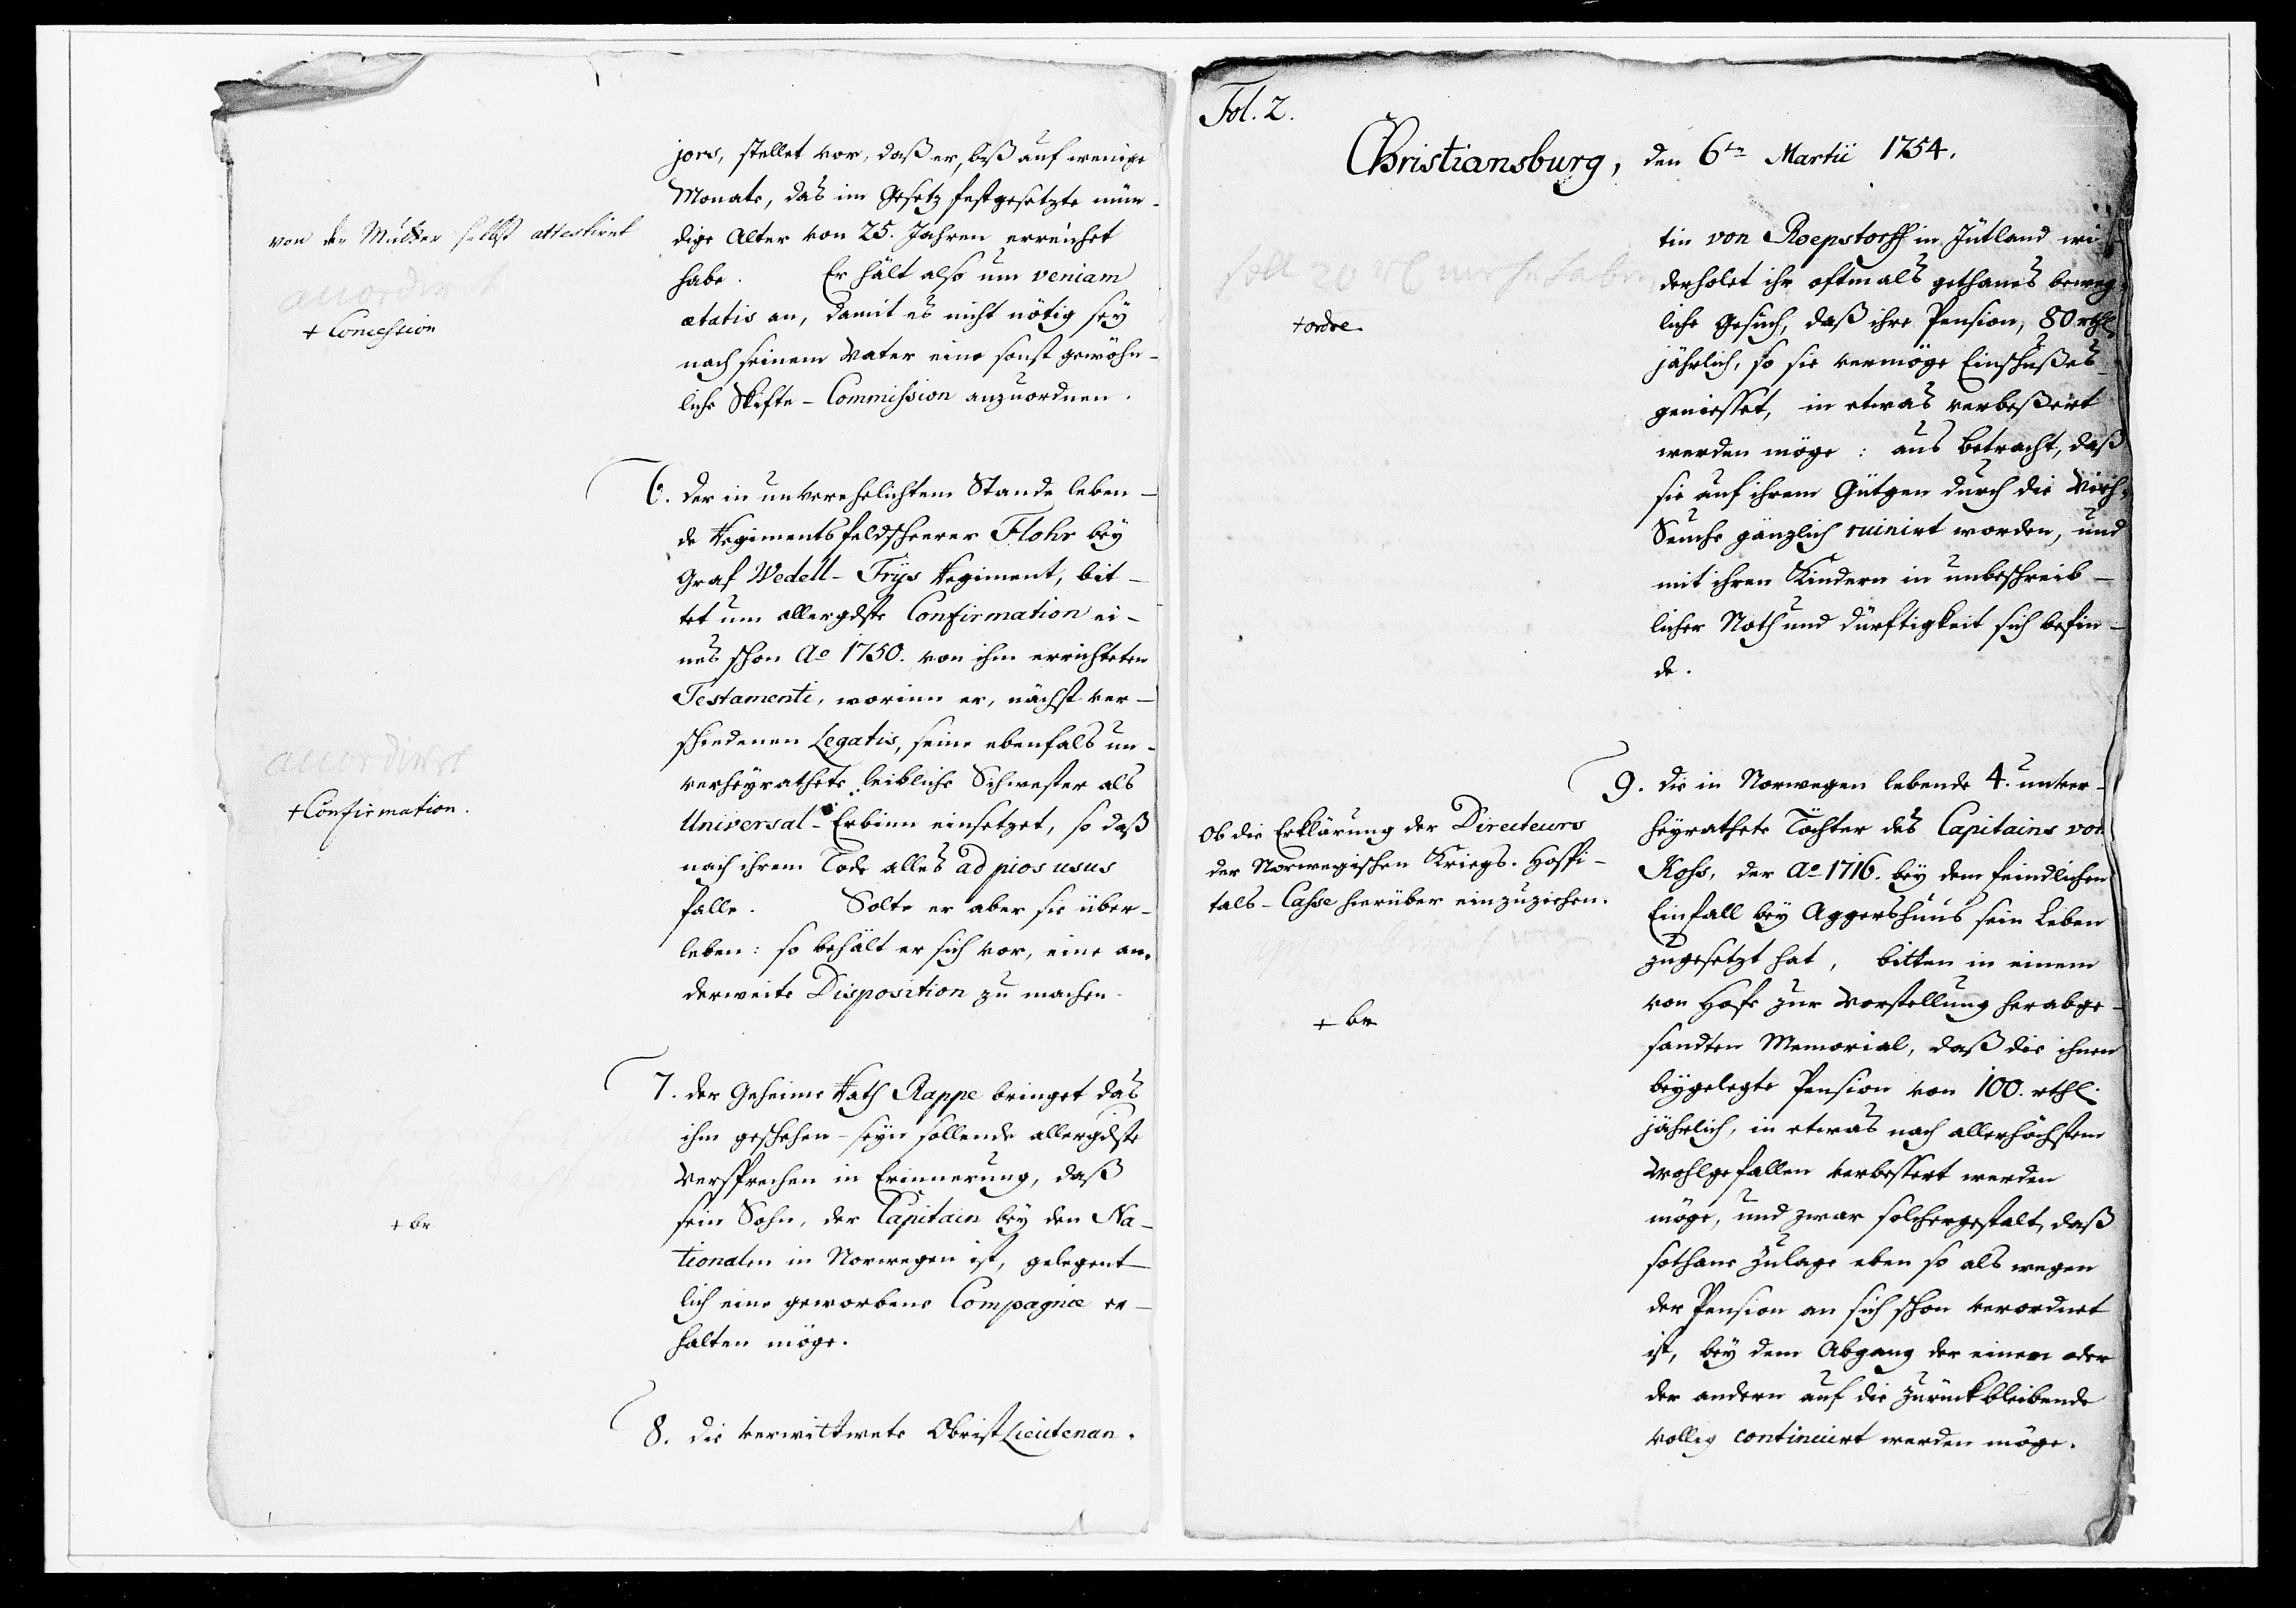 jors, stellet vor, daß er, biß auf wenige
Monate, das im Gesetz festgesetzte mün-
von der Mutter selbst attestiret
dige Alter von 25. Jahren erreichet
habe. Er hält also um veniam
accordirt
ætatis an, damit es nicht nötig sey
+ Concession
nach seinem Vater eine sonst gewöhn-
liche Skifte-Commission anzuordnen.
6. der in unverehelichtem Stande leben-
de Regimentsfeldscheerer Flohr bey
Graf Wedell-Friis Regiment, bit-
tet um allergdste Confirmation ei-
nes schon Ao 1750. von ihm errichteten
Testamenti, worinn er, nächst ver-
schiedenen Legatis, seine ebenfals un-
verheyrathete leibliche Schwester als
accordirt
+ Confirmation.
Universal-Erbinn einsetzet, so daß
nach ihrem Tode alles ad pios usus
falle. Solte er aber sie über-
leben: so behält er sich vor, eine an-
derweite Disposition zu machen.
7. der Geheime Rath Rappe bringet das
ihm geschehen-seyn sollende allergdste
Versprechen in Erinnerung, daß
sein Sohn, der Capitain bey den Na-
+ br
tionalen in Norwegen ist, gelegent-
lich eine geworbene Compagnie er-
halten möge.
8. die verwittwete ObristLieutenan-
Fol. 2.
Christiansburg, den 6tn Martii 1754.
tin von Roepstorff in Jütland wie-
soll 20 rthl mehr haben
derholet ihr oftmals gethanes beweg-
+ ordre.
liche Gesuch, daß ihre Pension, 80 rthl
jährlich, so sie vermöge Einschußes
geniesset, in etwas verbeßert
werden möge: aus Betracht, daß
sie auf ihrem Gütgen durch die Vieh-
Seuche gänzlich ruinirt worden, und
mit ihren Kindern in unbeschreib-
licher Noth und Dürftigkeit sich befin-
de.
9. die in Norwegen lebende 4. unver-
heyrathete Töchter des Capitains von
Koss, der Ao 1716. bey dem feindlichen
Einfall bey Aggershuus sein Leben
zugesetzt hat, bitten in einem
von Hofe zur Vorstellung herabge-
sandten Memorial, daß die ihnen
beygelegte Pension von 100. rthl.
jährlich, in etwas nach allerhöchstem
Wohlgefallen verbessert werden
möge, und zwar solchergestalt, daß
sothane Zulage eben so als wegen
der Pension an sich schon verordnet
ist, bey dem Abgang der einen oder
der andern auf die zurückbleibende
vollig continuirt werden möge.
Ob die Erklärung der Directeurs
der Norwegischen Kriegs-Hospi-
tals-Casse hierüber einzuziehen.
+ br